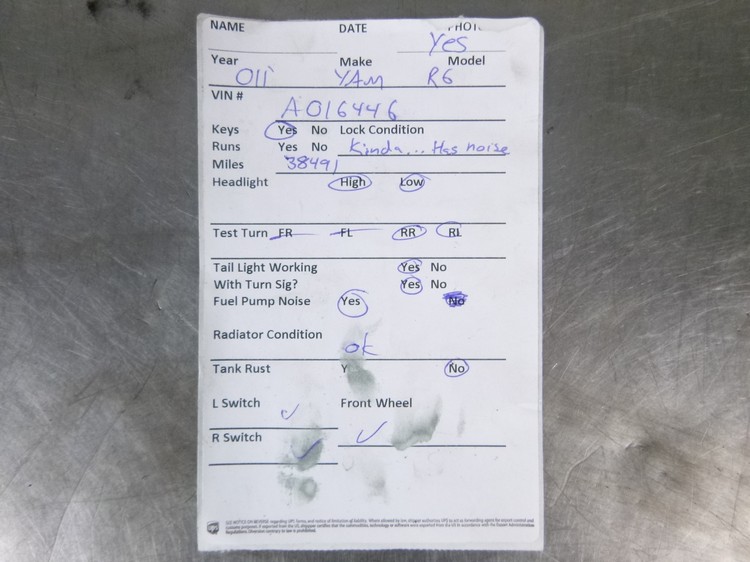 NAME DATE
Yes
Year Make Model
011 YAM R6
VIN #
A016446
Keys Yes No Lock Condition
Runs Yes No Kinda... Has noise
Miles 38491
Headlight High Low
Test Turn FR FL RR RL
Tail Light Working Yes No
With Turn Sig? Yes No
Fuel Pump Noise Yes No
Radiator Condition
ok
Tank Rust Y No
L Switch Front Wheel
R Switch